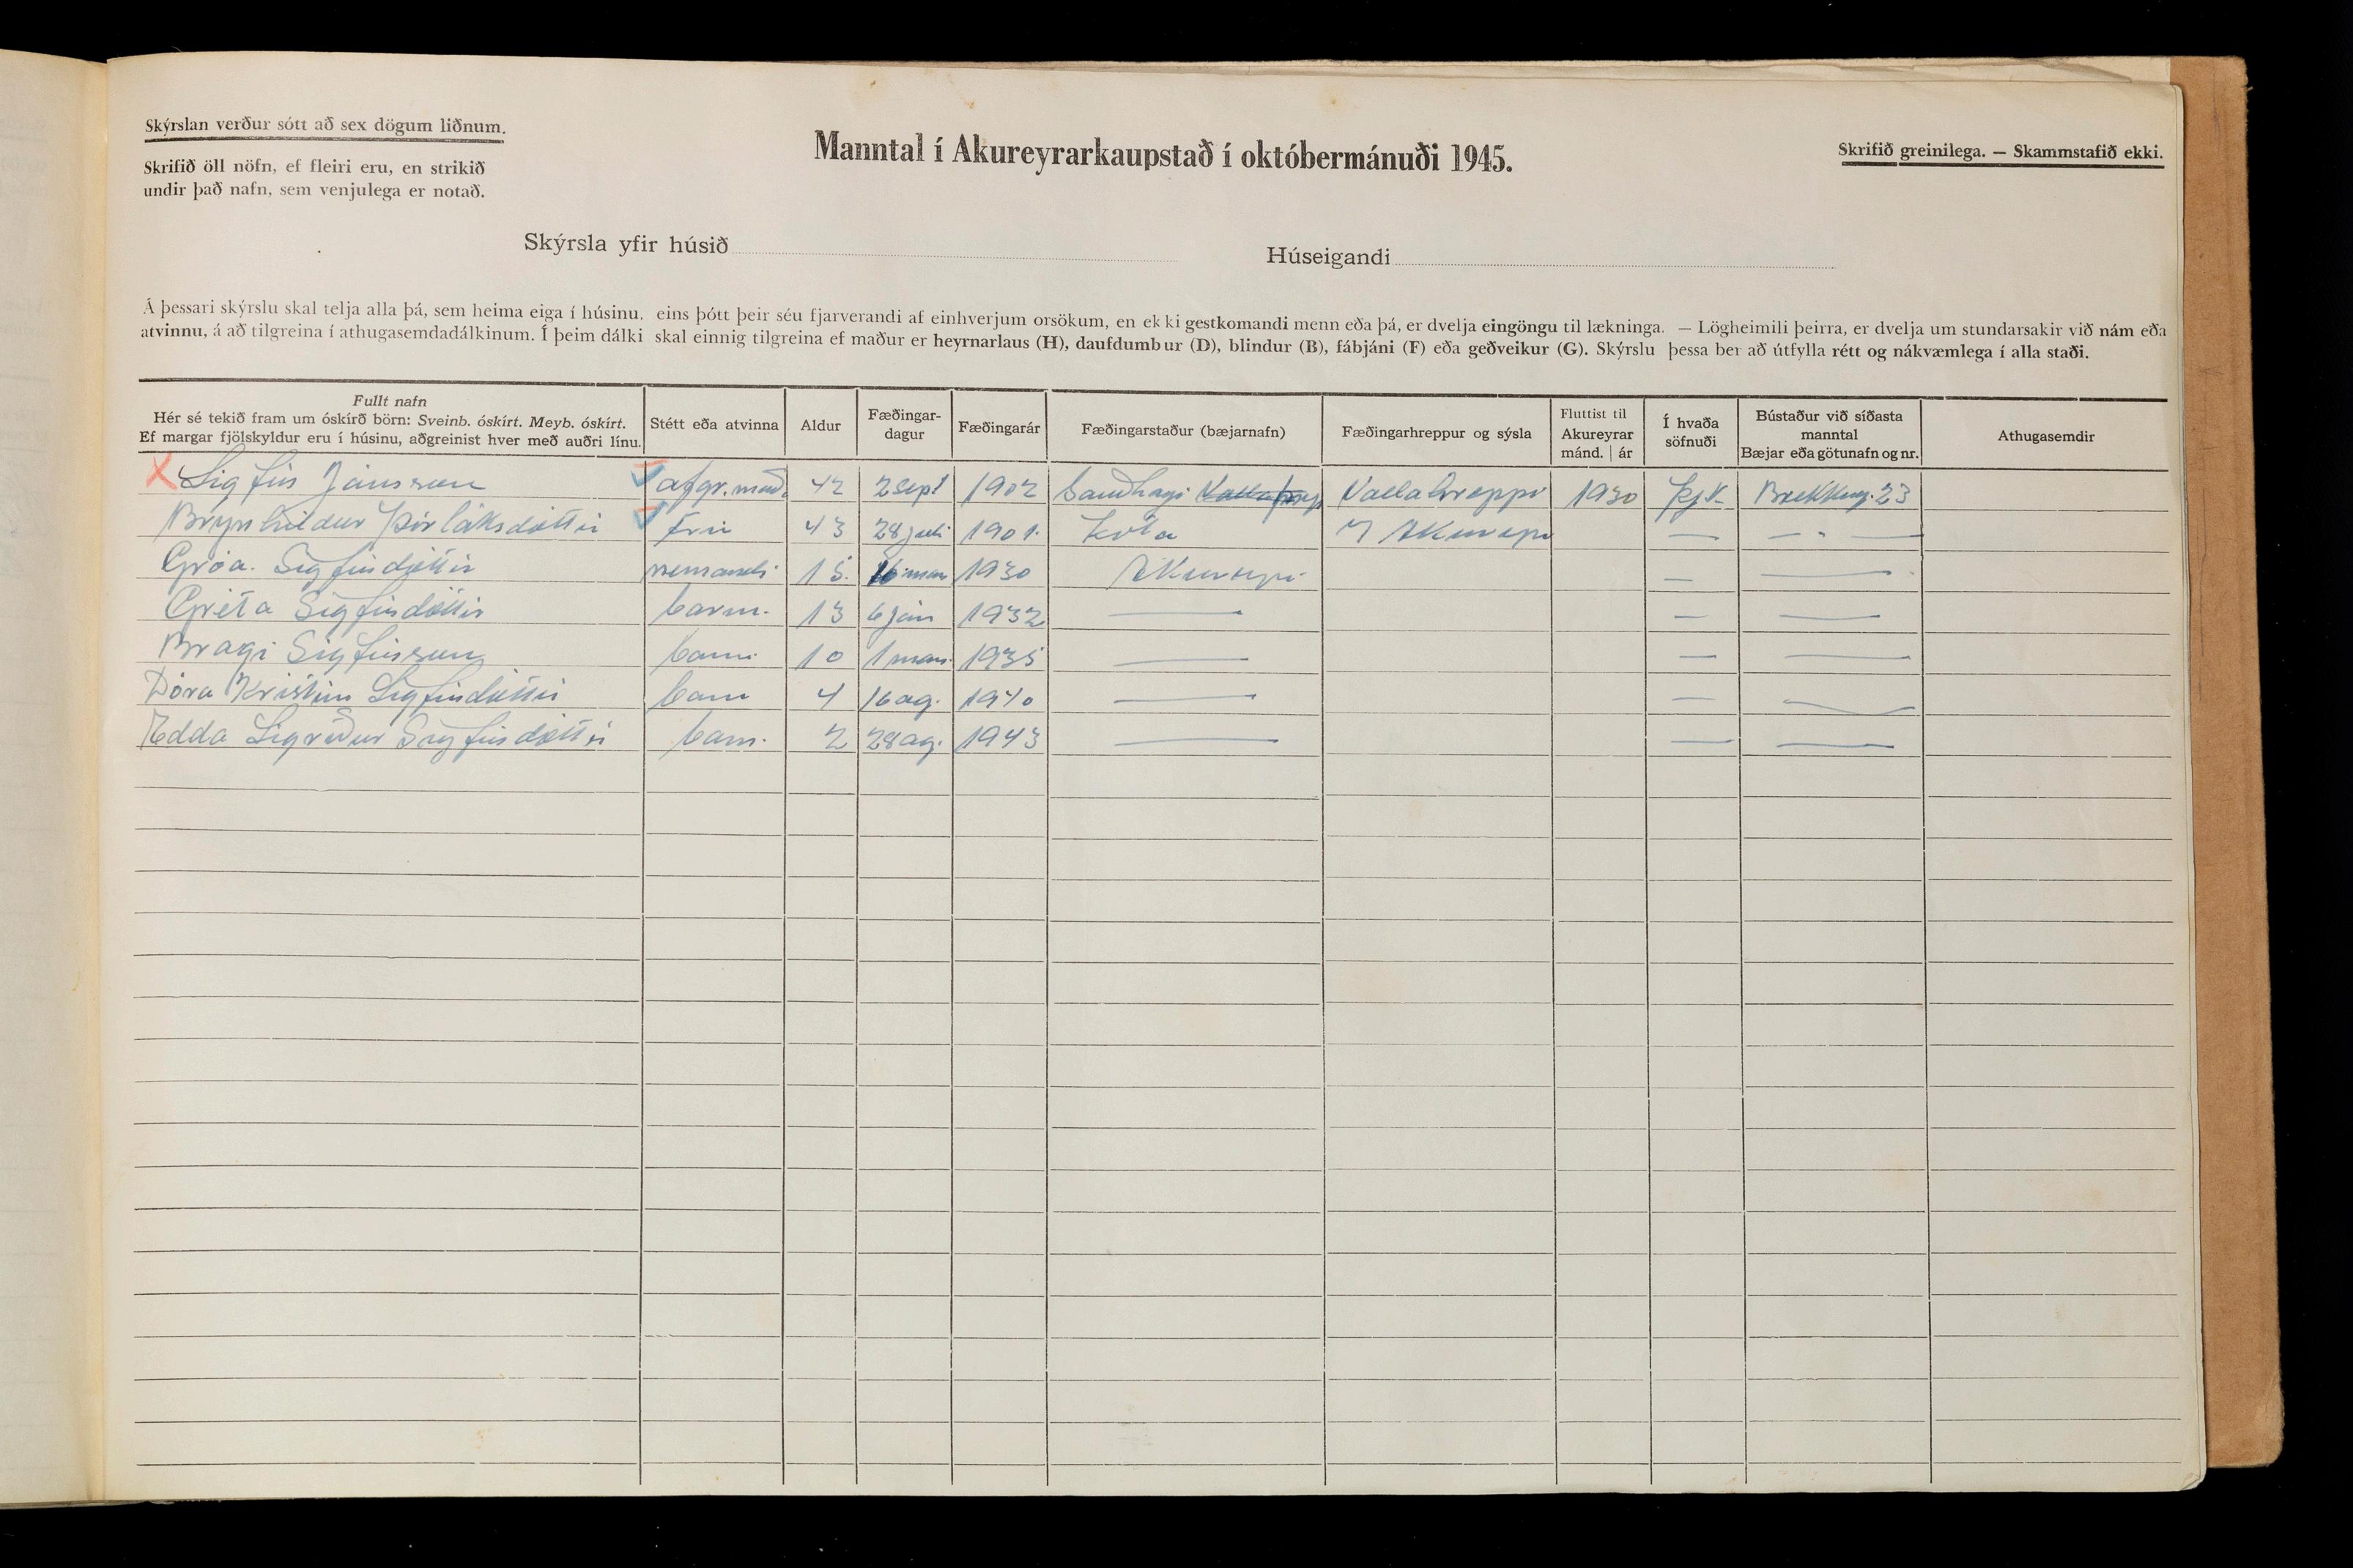 Skýrslan verður sótt að sex dögum liðnum.
Skrifið öll nöfn, ef fleiri eru, en strikið
undir það nafn, sem venjulega er notað.
Manntal í Akureyrarkaupstað í októbermánuði 1945.
Skrifið greinilega. — Skammstafið ekki.
Skýrsla yfir húsið
Húseigandi
Á þessari skýrslu skal telja alla þá, sem heima eiga í húsinu, eins þótt þeir séu fjarverandi af einhverjum orsökum, en ekki gestkomandi menn eða þá, er dvelja eingöngu til lækninga. — Lögheimili þeirra, er dvelja um stundarsakir við nám eða
atvinnu, á að tilgreina í athugasemdadálkinum. Í þeim dálki skal einnig tilgreina ef maður er heyrnarlaus (H), daufdumbur (D), blindur (B), fábjáni (F) eða geðveikur (G). Skýrslu þessa ber að útfylla rétt og nákvæmlega í alla staði.
Fullt nafn
Hér sé tekið fram um óskírð börn: Sveinb. óskírt. Meyb. óskírt.
Ef margar fjölskyldur eru í húsinu, aðgreinist hver með auðri línu.
Stétt eða atvinna
Aldur
Fæðingar-
dagur
Fæðingarár
Fæðingarstaður (bæjarnafn)
Fæðingarhreppur og sýsla
Fluttist til
Akureyrar
mánd. | ár
Í hvaða
söfnuði
Bústaður við síðasta
manntal
Bæjar eða götunafn og nr.
Athugasemdir
Sigfús Jónsson afgr.mað. 42 2 sept 1902 Vallahreppi 1930 þj.k. Brekkug. 23
Brynhildur Þorláksdóttir frú 43 28 júlí 1901. Akureyri — — " —
Gróa Sigfúsdóttir nemandi 15. 1930 Akureyri — —
Gréta Sigfúsdóttir barn. 13 6 jan 1932 — — —
Bragi Sigfússon barn. 10 1 1935 — — —
Dóra Kristín Sigfúsdóttir barn 4 16 ag. 1940 — — —
Edda Sigríður Sigfúsdóttir barn. 2 28 ag. 1943 — — —